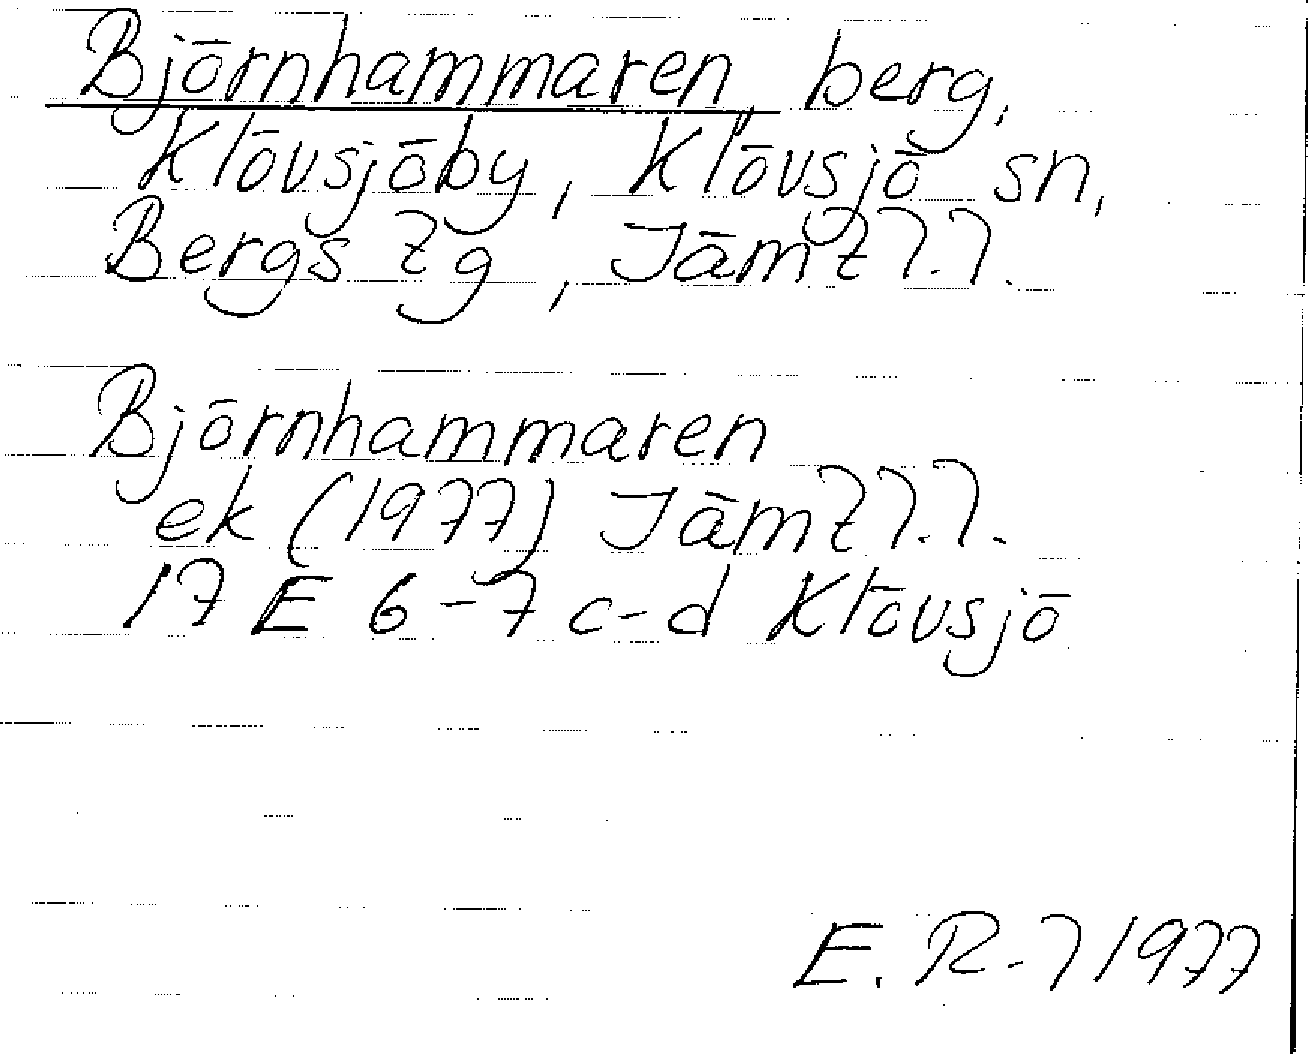 Björnhammaren, berg,
Klövsjöby, Klövsjö sn,
Bergs tg, Jämtl.l.
Björnhammaren
ek (1977) Jämtl.l.
17 E 6-7 c-d Klövsjö
E. R-l 1977